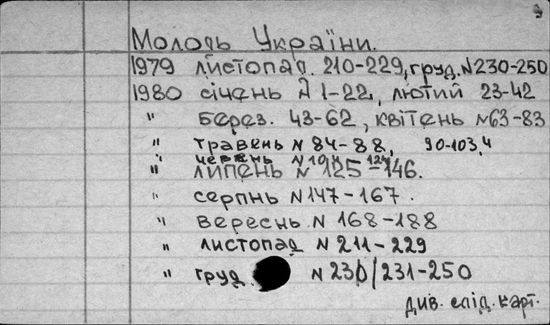 Молодь України.
1979 листопад. 210-229, груд. N230-250
1980 січень N 1-22, лютий 23-42
" берез. 43-62, квітень N63-83
" травень N 84-88, 90-103,4
" червень N 104 124
" липень N 125-146.
" серпнь N147-167.
" вересень N 168-188
" листопад N 211-229
" груд. N 230/231-250
див. слід. карт.